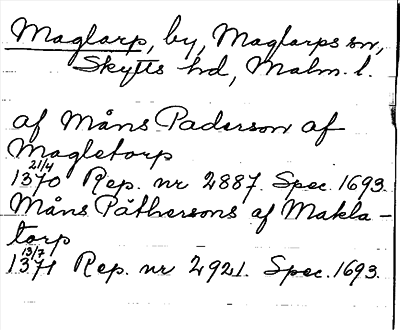 Maglarp, by, Maglarps sn,
Skytts hd, Malm. l.
af Måns Paderson af
Magletorp
21/4
1370 Rep. nr 2887. Spec. 1693.
Måns Påthersons af Makla-
torp
13/7
1371 Rep. nr 2921. Spec. 1693.